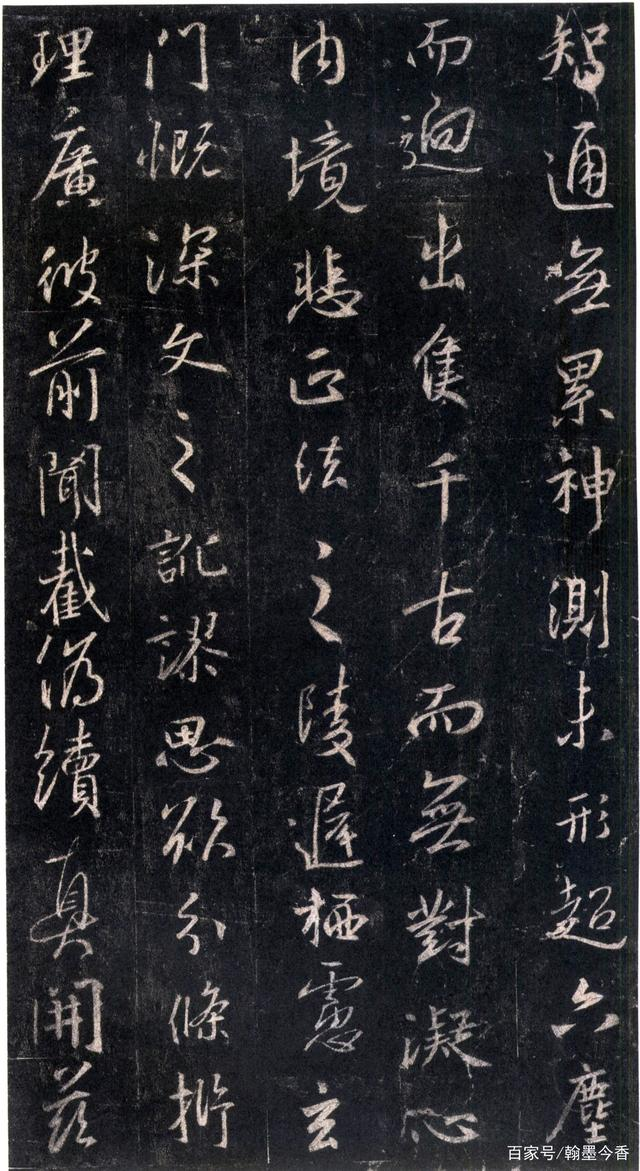 智通無累神測未形超六塵
而迥出隻千古而無對凝心
內境悲正法之陵遲栖慮玄
門慨深文之訛謬思欲分條析
理廣彼前聞截偽續真開茲
百家号/翰墨今香